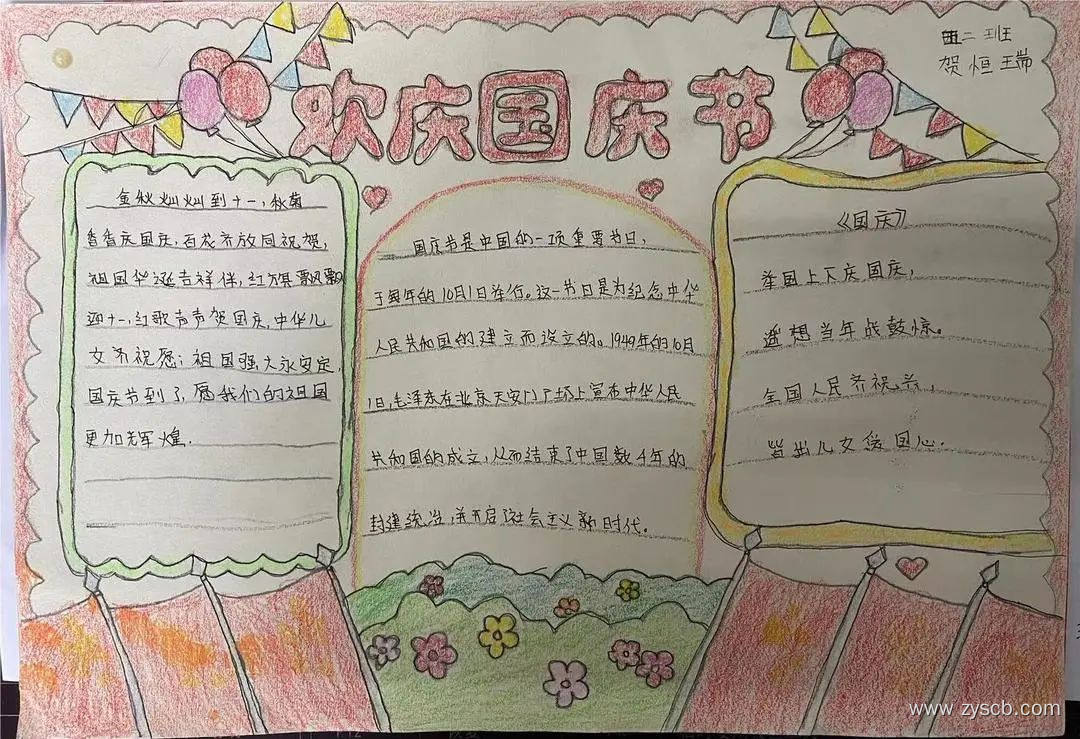 欢庆国庆节
五二班
贺恒瑞
金秋灿灿到十一,秋菊
香香庆国庆,百花齐放同祝贺,
祖国华诞吉祥伴,红旗飘飘
迎十一,红歌声声贺国庆,中华儿
女齐祝愿:祖国强大永安定,
国庆节到了,愿我们的祖国
更加辉煌.
国庆节是中国的一项重要节日,
于每年的10月1日举行。这一节日是为纪念中华
人民共和国的建立而设立的。1949年的10月
1日,毛泽东在北京天安门广场上宣布中华人民
共和国的成立,从而结束了中国数千年的
封建统治,并开启了社会主义新时代。
《国庆》
举国上下庆国庆,
遥想当年战鼓惊。
全国人民齐祝
儿女 国心.
www.zyscb.com